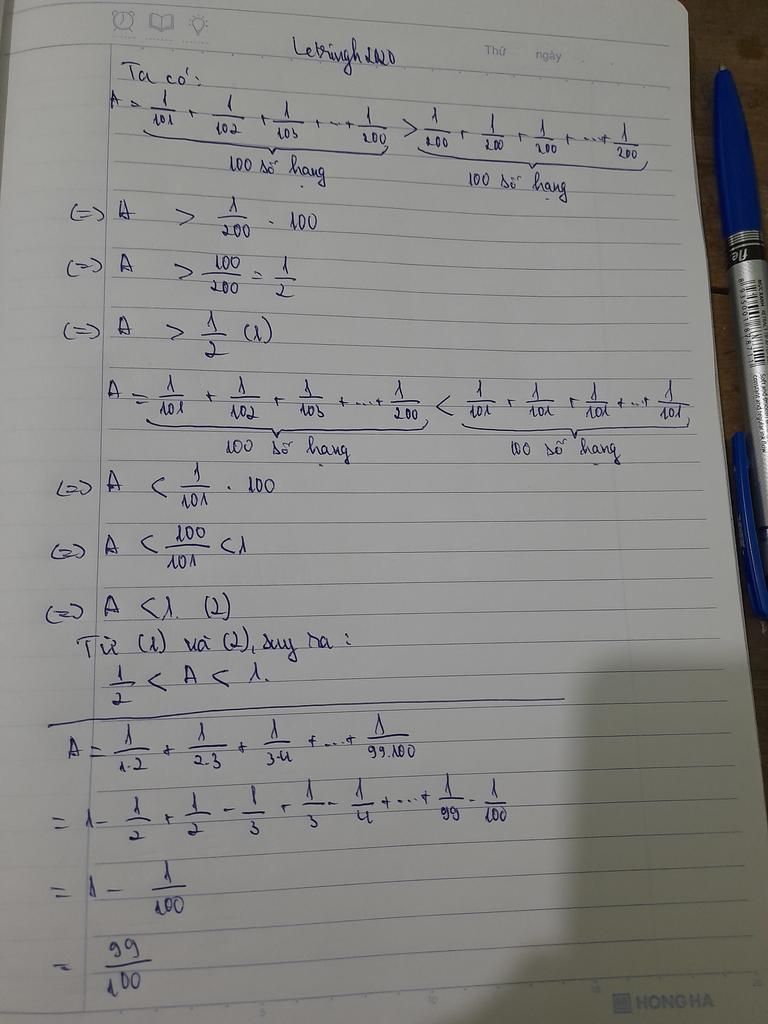 Thứ ngày
Ta có:
A = 1/101 + 1/102 + 1/103 + ... + 1/200 > 1/200 + 1/200 + 1/200 + ... + 1/200
100 số hạng 100 số hạng
(=) A > 1/200 . 100
(=) A > 100/200 = 1/2
(=) A > 1/2 (1)
A = 1/101 + 1/102 + 1/103 + ... + 1/200 < 1/101 + 1/101 + 1/101 + ... + 1/101
100 số hạng 100 số hạng
(=) A < 1/101 . 100
(=) A < 100/101 < 1
(=) A < 1. (2)
Từ (1) và (2), suy ra:
1/2 < A < 1.
A = 1/1.2 + 1/2.3 + 1/3.4 + ... + 1/99.100
= 1 - 1/2 + 1/2 - 1/3 + 1/3 - 1/4 + ... + 1/99 - 1/100
= 1 - 1/100
= 99/100
HONG HA
fle